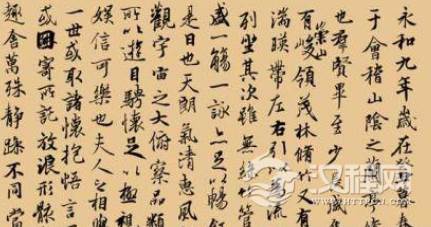 永和九年歲在癸丑暮春
于會稽山陰之蘭亭脩
也羣賢畢至少長咸集
有崇山峻領茂林脩竹又有
湍暎帶左右引以為流
列坐其次雖無絲竹管
盛一觴一詠亦足以暢叙
是日也天朗氣清惠風
觀宇宙之大俯察品類
所以遊目騁懷足以極視
娛信可樂也夫人之相與
一世或取諸懷抱悟言一
或因寄所託放浪形骸
趣舍萬殊靜躁不同當
汉程网